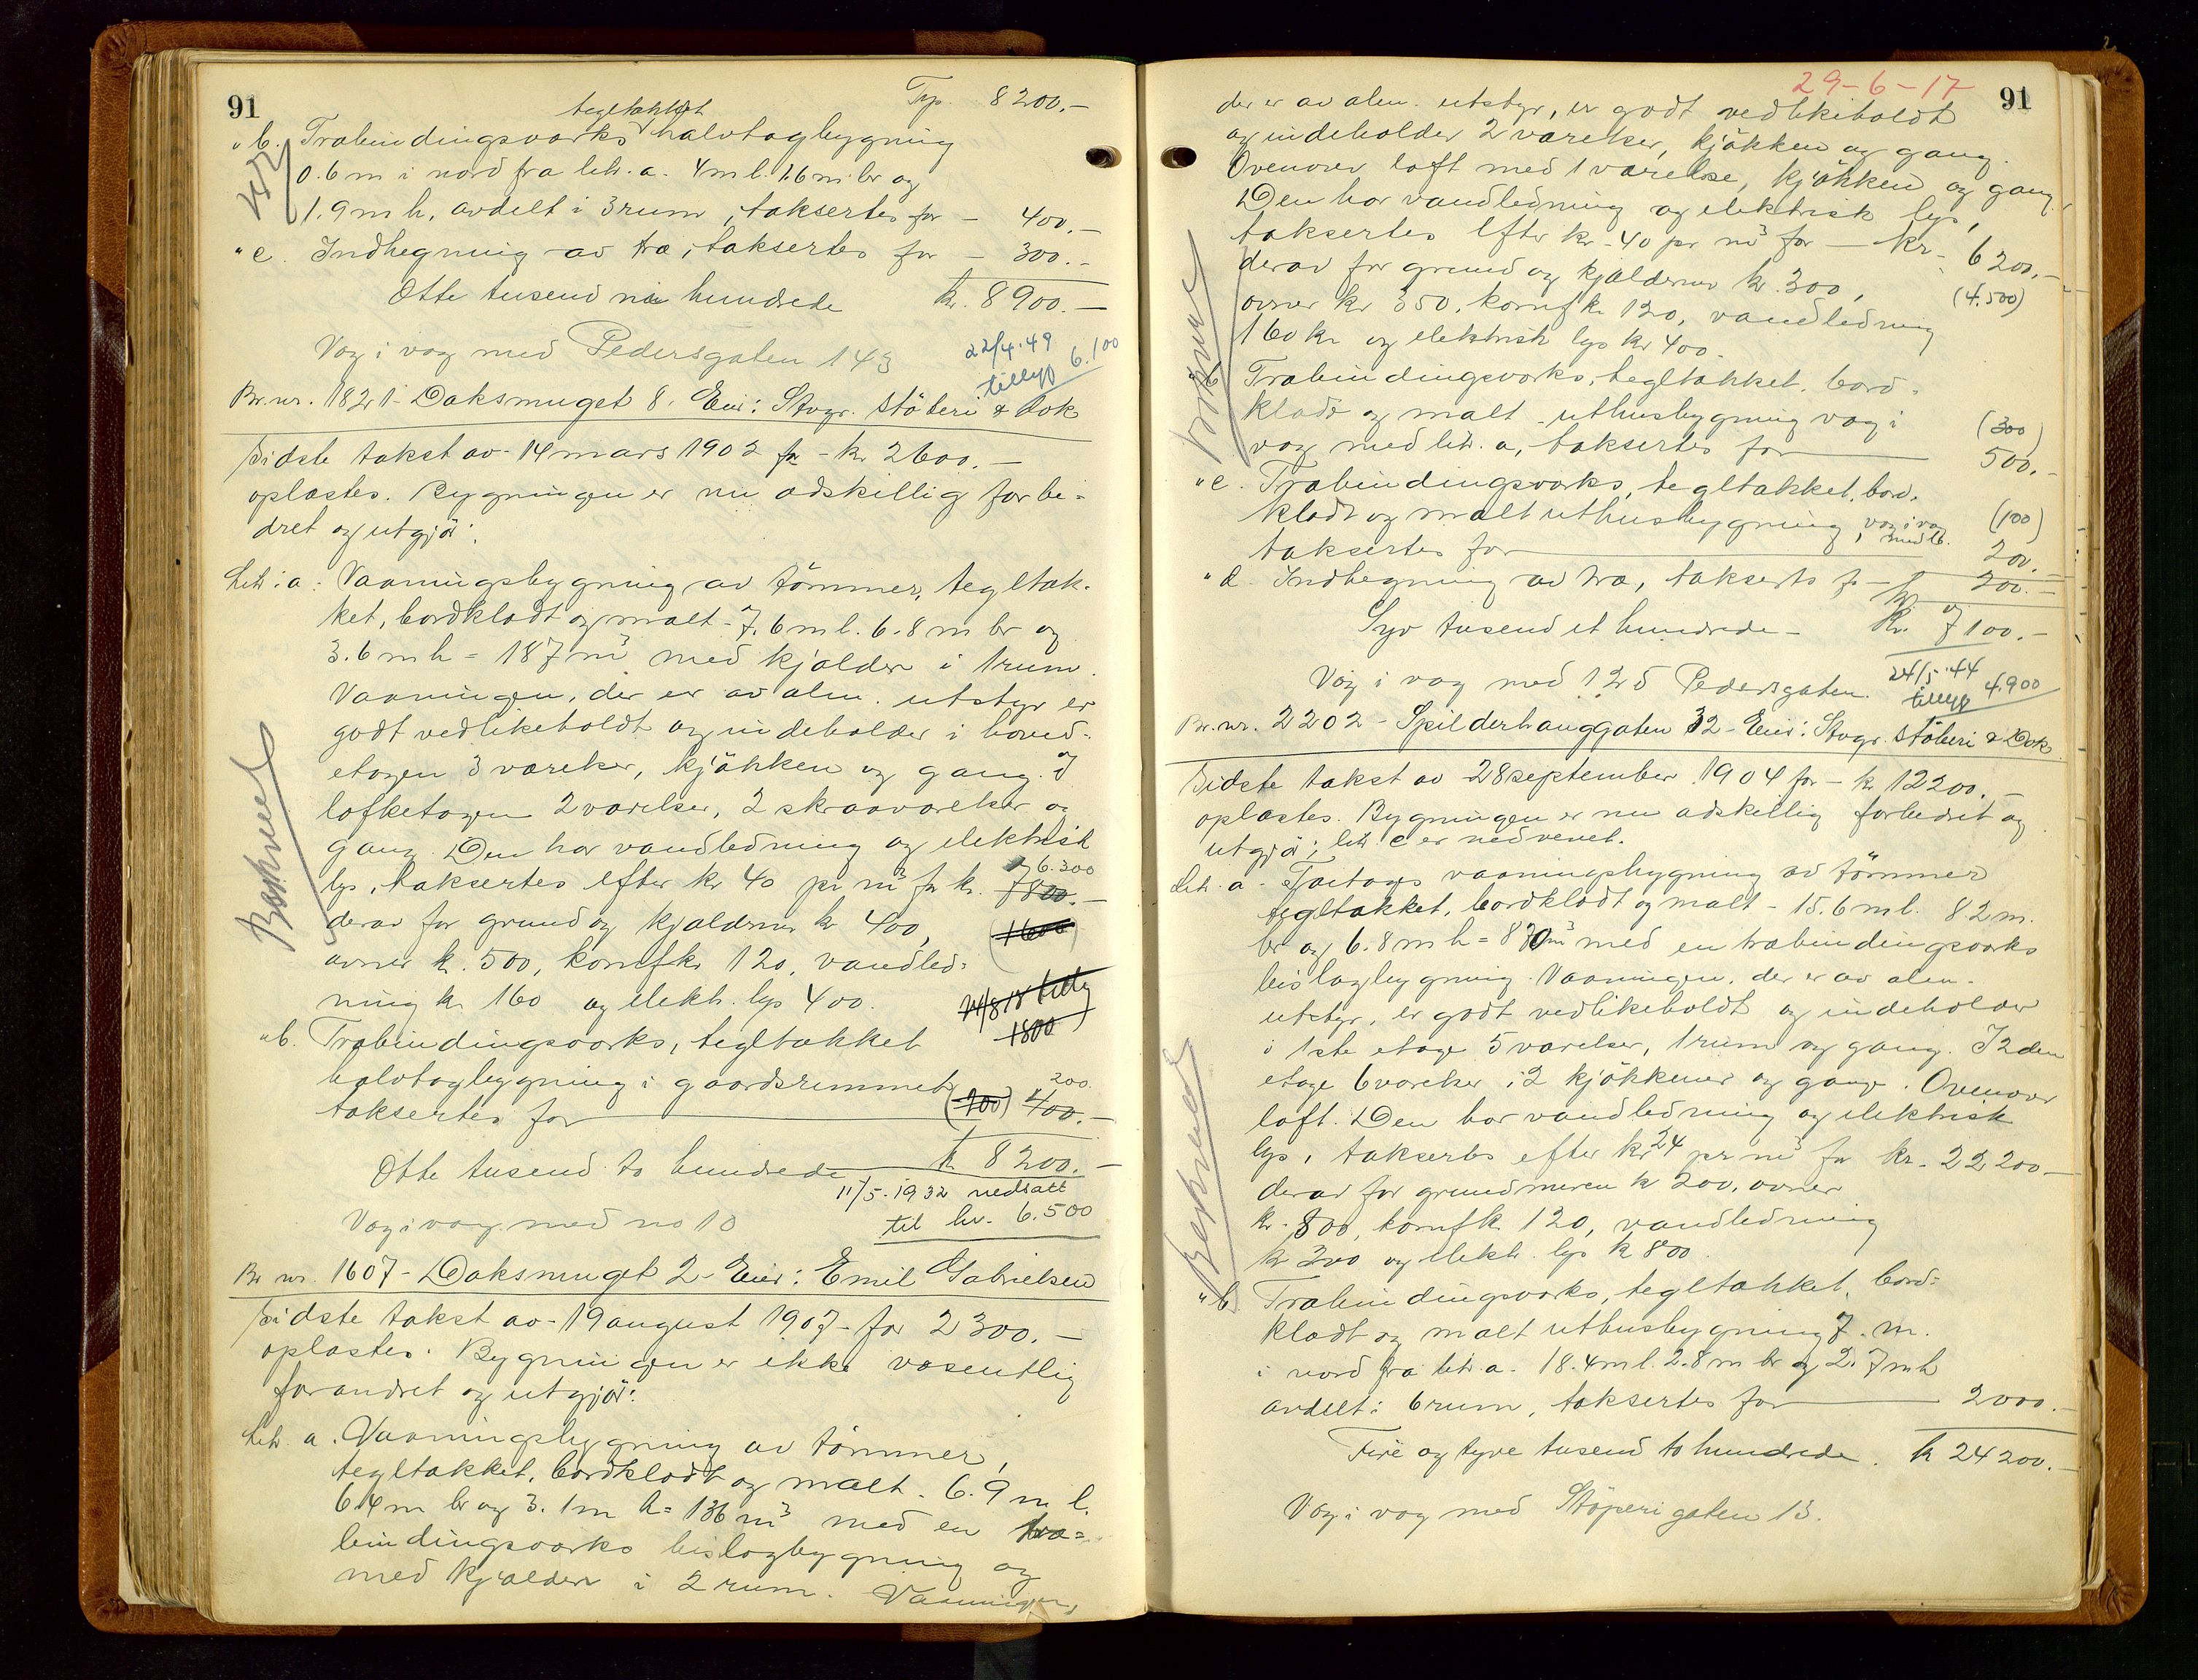 91
Trp. 8200.-
tegltækket
" b. Træbindingsværks halvtagbygning
0.6 m i nord fra litr. a. 4 m l. 1.6 m br og
1.9 m h, avdelt i 3 rum, taksertes for - 400.-
" c. Indhegning av træ, taksertes for - 300.-
Otte tusend ni hundrede kr. 8900.-
Væg i væg med Pedersgaten 143
22/4.49
tillegg 6.100
Br. nr. 1821 - Doksmuget 8. Eier: Stvgr. Støberi & Dok
Sidste takst av 14 mars 1902 for - kr 2600.-
oplæstes. Bygningen er nu adskillig forbe=
dret og utgjør:
Litr. a: Vaaningsbygning av tømmer, tegltæk-
ket, bordklædt og malt - 7.6 m l. 6.8 m br og
3.6 m h = 187 m³ med kjælder i 1 rum.
Vaaningen, der er av alm. utstyr er
godt vedlikeholdt og indeholder i hoved-
etagen 3 værelser, kjøkken og gang. I
loftetagen 2 værelser, 2 skraaværelser og
gang. Den har vandledning og elektrisk
6.300
lys, taksertes efter kr 40 pr m³ for kr. 7800.-
derav for grund og kjælderm kr 400, (1600)
ovner kr. 500, komf kr 120, vandled=
ning kr 160 og elektr. lys 400.
24/8 18 tillg
1800
Beskrevet
" b. Træbindingsværks, tegltækket
halvtagbygning i gaardsrummet 200
taksertes for (200) 400.-
Otte tusend to hundrede kr 8200.-
11/5.1932 nedsatt
til kr. 6.500
Væg i væg med no 10
Br nr. 1607 - Doksmuget 2 - Eier: Emil Gabrielsen
Sidste takst av 19 august 1907 - for 2300.-
oplæstes. Bygningen er ikke væsentlig
forandret og utgjør:
Litr. a. Vaaningsbygning av tømmer,
tegltækket, bordklædt og malt. 6.9 m l.
6.4 m br og 3.1 m h = 136 m³ med en træ=
bindingsværks bislagbygning og
med kjælder i 2 rum. Vaaningen,
29-6-17
91
der er av alm. utstyr, er godt vedlikeholdt
og indeholder 2 værelser, kjøkken og gang.
Ovenover loft med 1 værelse, kjøkken og gang.
Den har vandledning og elektrisk lys,
taksertes efter kr - 40 pr m³ for - kr - 6200.-
derav for grund og kjælderm kr 300, (4.500)
ovner kr 350, komf kr 120, vandledning
160 kr og elektrisk lys kr 400.
Beskrevet
" b. Træbindingsværks, tegltækket, bord=
klædt og malt uthusbygning væg i (300)
væg med litr. a, taksertes for 500.-
" c. Træbindingsværks, tegltækket, bord-
klædt og malt uthusbygning, væg i væg (100)
med b.
taksertes for 200.-
" d. Indhegning av træ, taksertes for - 200.-
Syv tusend et hundrede - Kr. 7100.-
Væg i væg med 125 Pedersgaten.
24/5.44
tillegg 4.900
Br. nr. 2202 - Spilderhauggaten 32 - Eier: Stvgr. Støberi & Dok
Sidste takst av 28 september 1904 for - kr 12200.-
oplæstes. Bygningen er nu adskillig forbedret og
utgjør; litr c er nedrevet.
Litr. a - Toetages vaaningsbygning av tømmer
tegltækket, bordklædt og malt - 15.6 m l. 8.2 m.
br og 6.8 m h = 870 m³ med en træbindingsværks
bislagbygning. Vaaningen, der er av alm.
utstyr, er godt vedlikeholdt og indeholder
i 1ste etage 5 værelser, 1 rum og gang. I 2den
etage 6 værelser, 2 kjøkkener og gang. Ovenover
loft. Den har vandledning og elektrisk
lys, taksertes efter kr 24 pr m³ for kr - 22200.-
derav for grundmuren kr 200, ovner
kr - 800, komf kr 120, vandledning
kr 300 og elektr. lys kr 800.
Beskrevet
" b. Træbindingsværks, tegltækket, bord=
klædt og malt uthusbygning 7. m.
i nord fra litr. a. 18.4 m l. 2.8 m br og 2.7 m h
avdelt i 6 rum, taksertes for 2000.-
Fire og tyve tusend to hundrede. kr 24200.-
Væg i væg med Støperigaten 13.